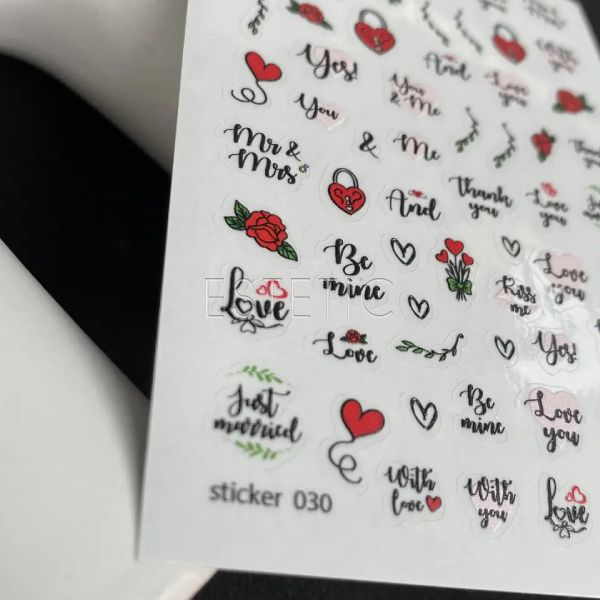 Yes!
And
Love
you
You
& Me
You
&
Me
Mr &
Mrs
And
Thank
you
Love
you
Be
mine
Love
you
Kiss
me
ESTETIC
Love
Love
Yes!
Just
married
Be
mine
Love
you
With
love
With
you
Love
sticker 030